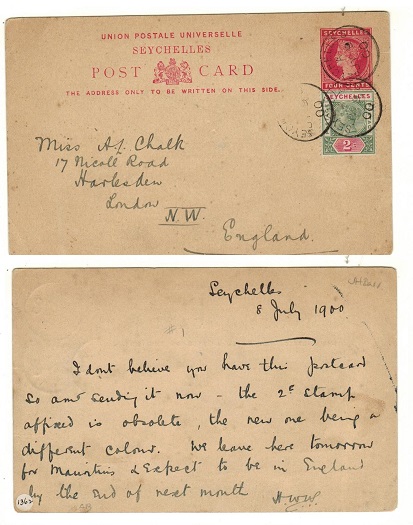 UNION POSTALE UNIVERSELLE
SEYCHELLES
POST CARD
THE ADDRESS ONLY TO BE WRITTEN ON THIS SIDE.
SEYCHELLES
FOUR CENTS
SEYCHELLES
2
Miss A. Chalk
17 Nicoll Road
Harlesden
London
N.W.
England.
Seychelles
8 July 1900
#1
I dont believe you have this postcard
so am sending it now - the 2c stamp
affixed is obsolete, the new one being a
different colour. We leave here tomorrow
for Mauritius & Expect to be in England
by the end of next month
1362